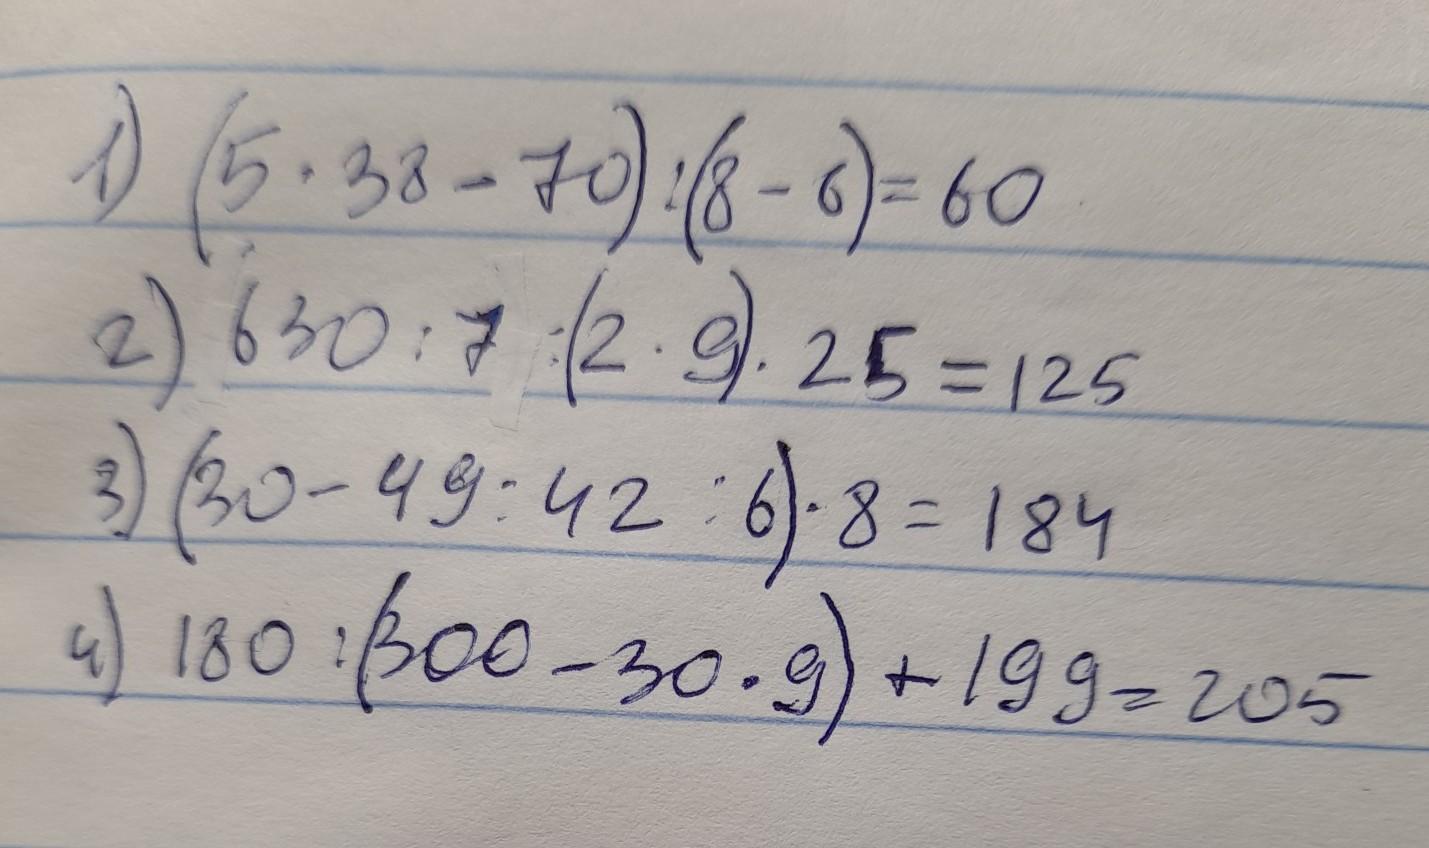 1) (5 · 38 - 70) : (8 - 6) = 60
2) 630 : 7 : (2 · 9) · 25 = 125
3) (30 - 49 : 42 : 6) · 8 = 184
4) 180 : (300 - 30 · 9) + 199 = 205